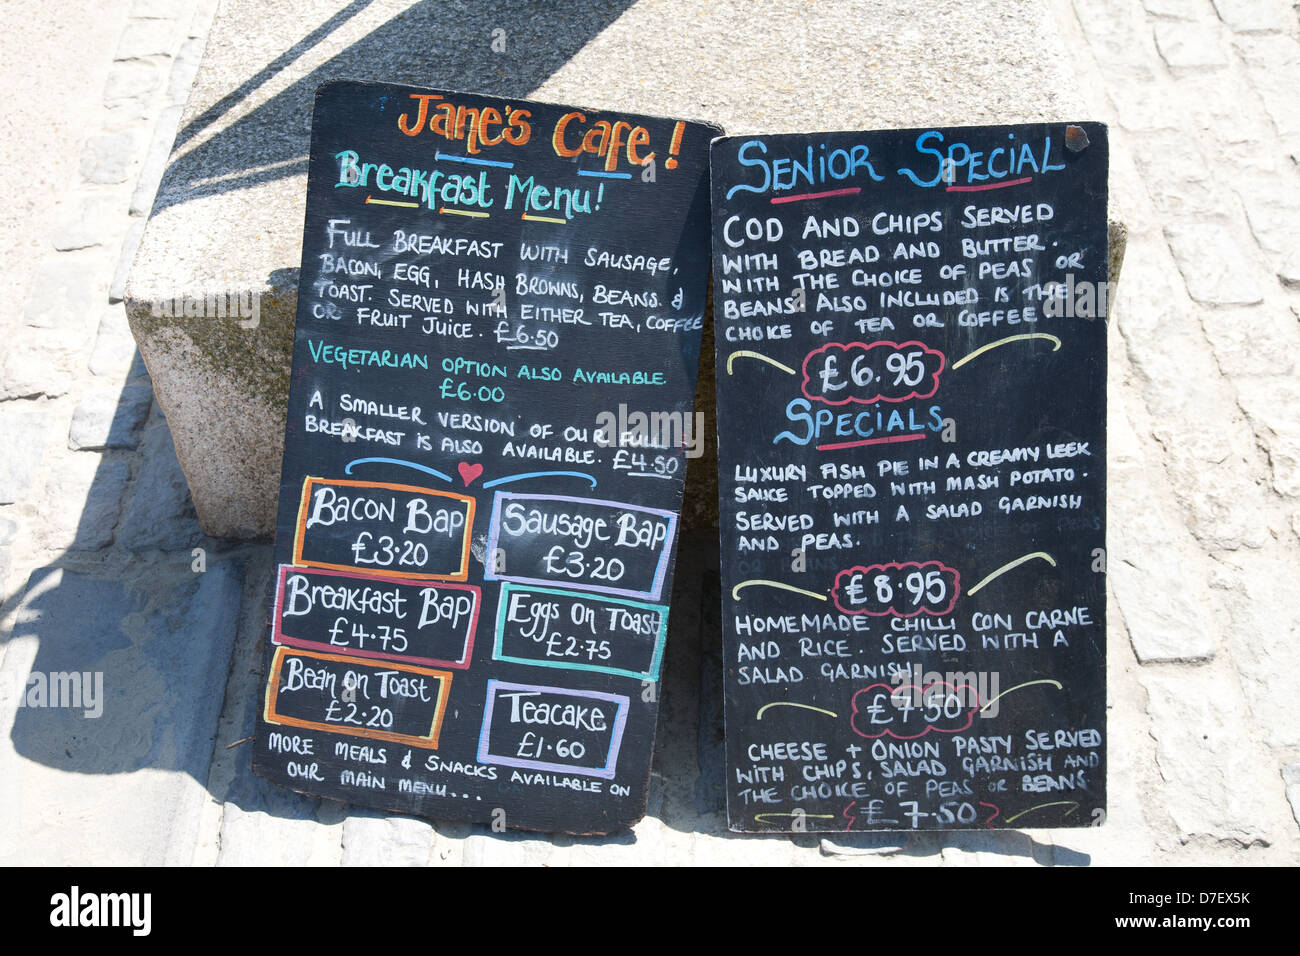 Jane's Cafe!
Breakfast Menu!
FULL BREAKFAST WITH SAUSAGE,
BACON, EGG, HASH BROWNS, BEANS &
TOAST. SERVED WITH EITHER TEA, COFFEE
OR FRUIT JUICE. £6.50
VEGETARIAN OPTION ALSO AVAILABLE.
£6.00
A SMALLER VERSION OF OUR FULL
BREAKFAST IS ALSO AVAILABLE. £4.50
Bacon Bap
£3.20
Sausage Bap
£3.20
Breakfast Bap
£4.75
Eggs On Toast
£2.75
Bean on Toast
£2.20
Teacake
£1.60
MORE MEALS & SNACKS AVAILABLE ON
OUR MAIN MENU...
SENIOR SPECIAL
COD AND CHIPS SERVED
WITH BREAD AND BUTTER.
WITH THE CHOICE OF PEAS OR
BEANS. ALSO INCLUDED IS THE
CHOICE OF TEA OR COFFEE
£6.95
SPECIALS
LUXURY FISH PIE IN A CREAMY LEEK
SAUCE TOPPED WITH MASH POTATO.
SERVED WITH A SALAD GARNISH
AND PEAS.
£8.95
HOMEMADE CHILLI CON CARNE
AND RICE. SERVED WITH A
SALAD GARNISH.
£7.50
CHEESE + ONION PASTY SERVED
WITH CHIPS, SALAD GARNISH AND
THE CHOICE OF PEAS OR BEANS
£7.50
alamy
a
a
alamy
alamy stock photo
D7EX5K
www.alamy.com